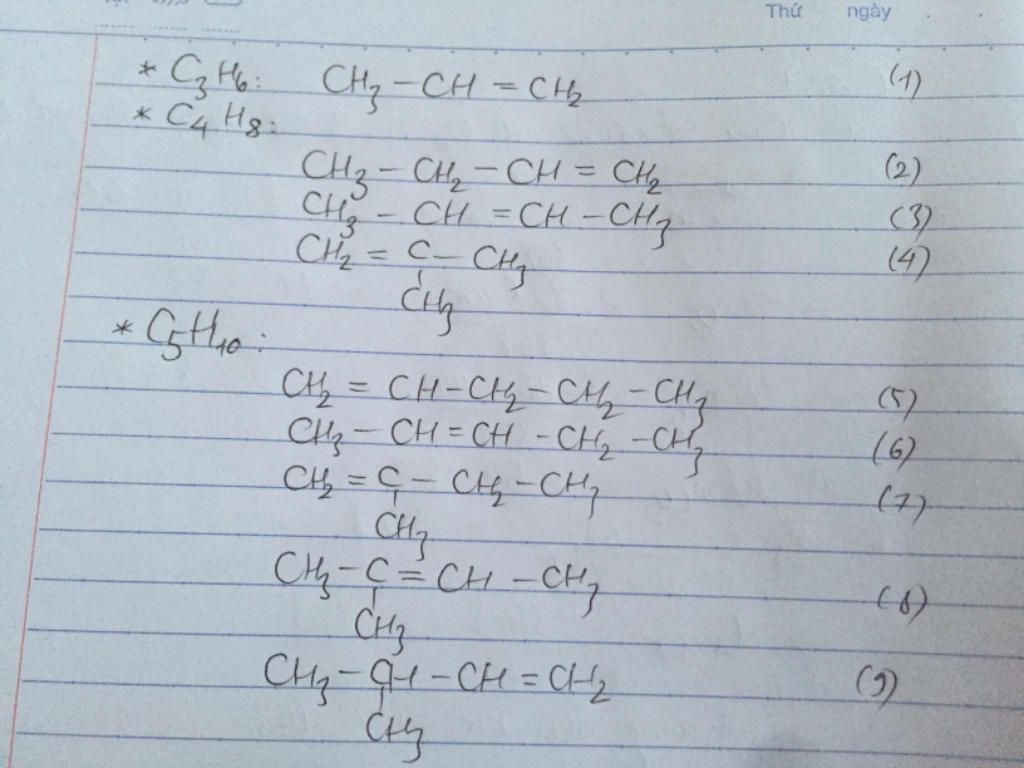 Thứ ngày
* C₃H₆: CH₃ – CH = CH₂ (1)
* C₄H₈:
CH₃ – CH₂ – CH = CH₂ (2)
CH₃ – CH = CH – CH₃ (3)
CH₂ = C – CH₃ (4)
CH₃
* C₅H₁₀:
CH₂ = CH – CH₂ – CH₂ – CH₃ (5)
CH₃ – CH = CH – CH₂ – CH₃ (6)
CH₂ = C – CH₂ – CH₃ (7)
CH₃
CH₃ – C = CH – CH₃ (8)
CH₃
CH₃ – CH – CH = CH₂ (9)
CH₃